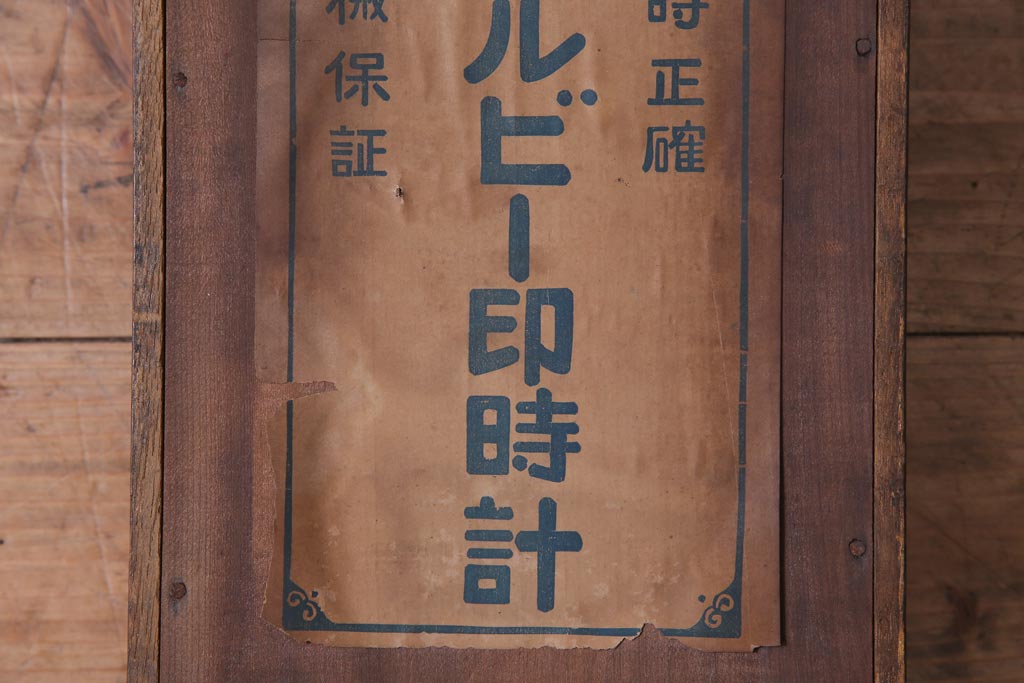 時正確
ルビー印時計
械保証